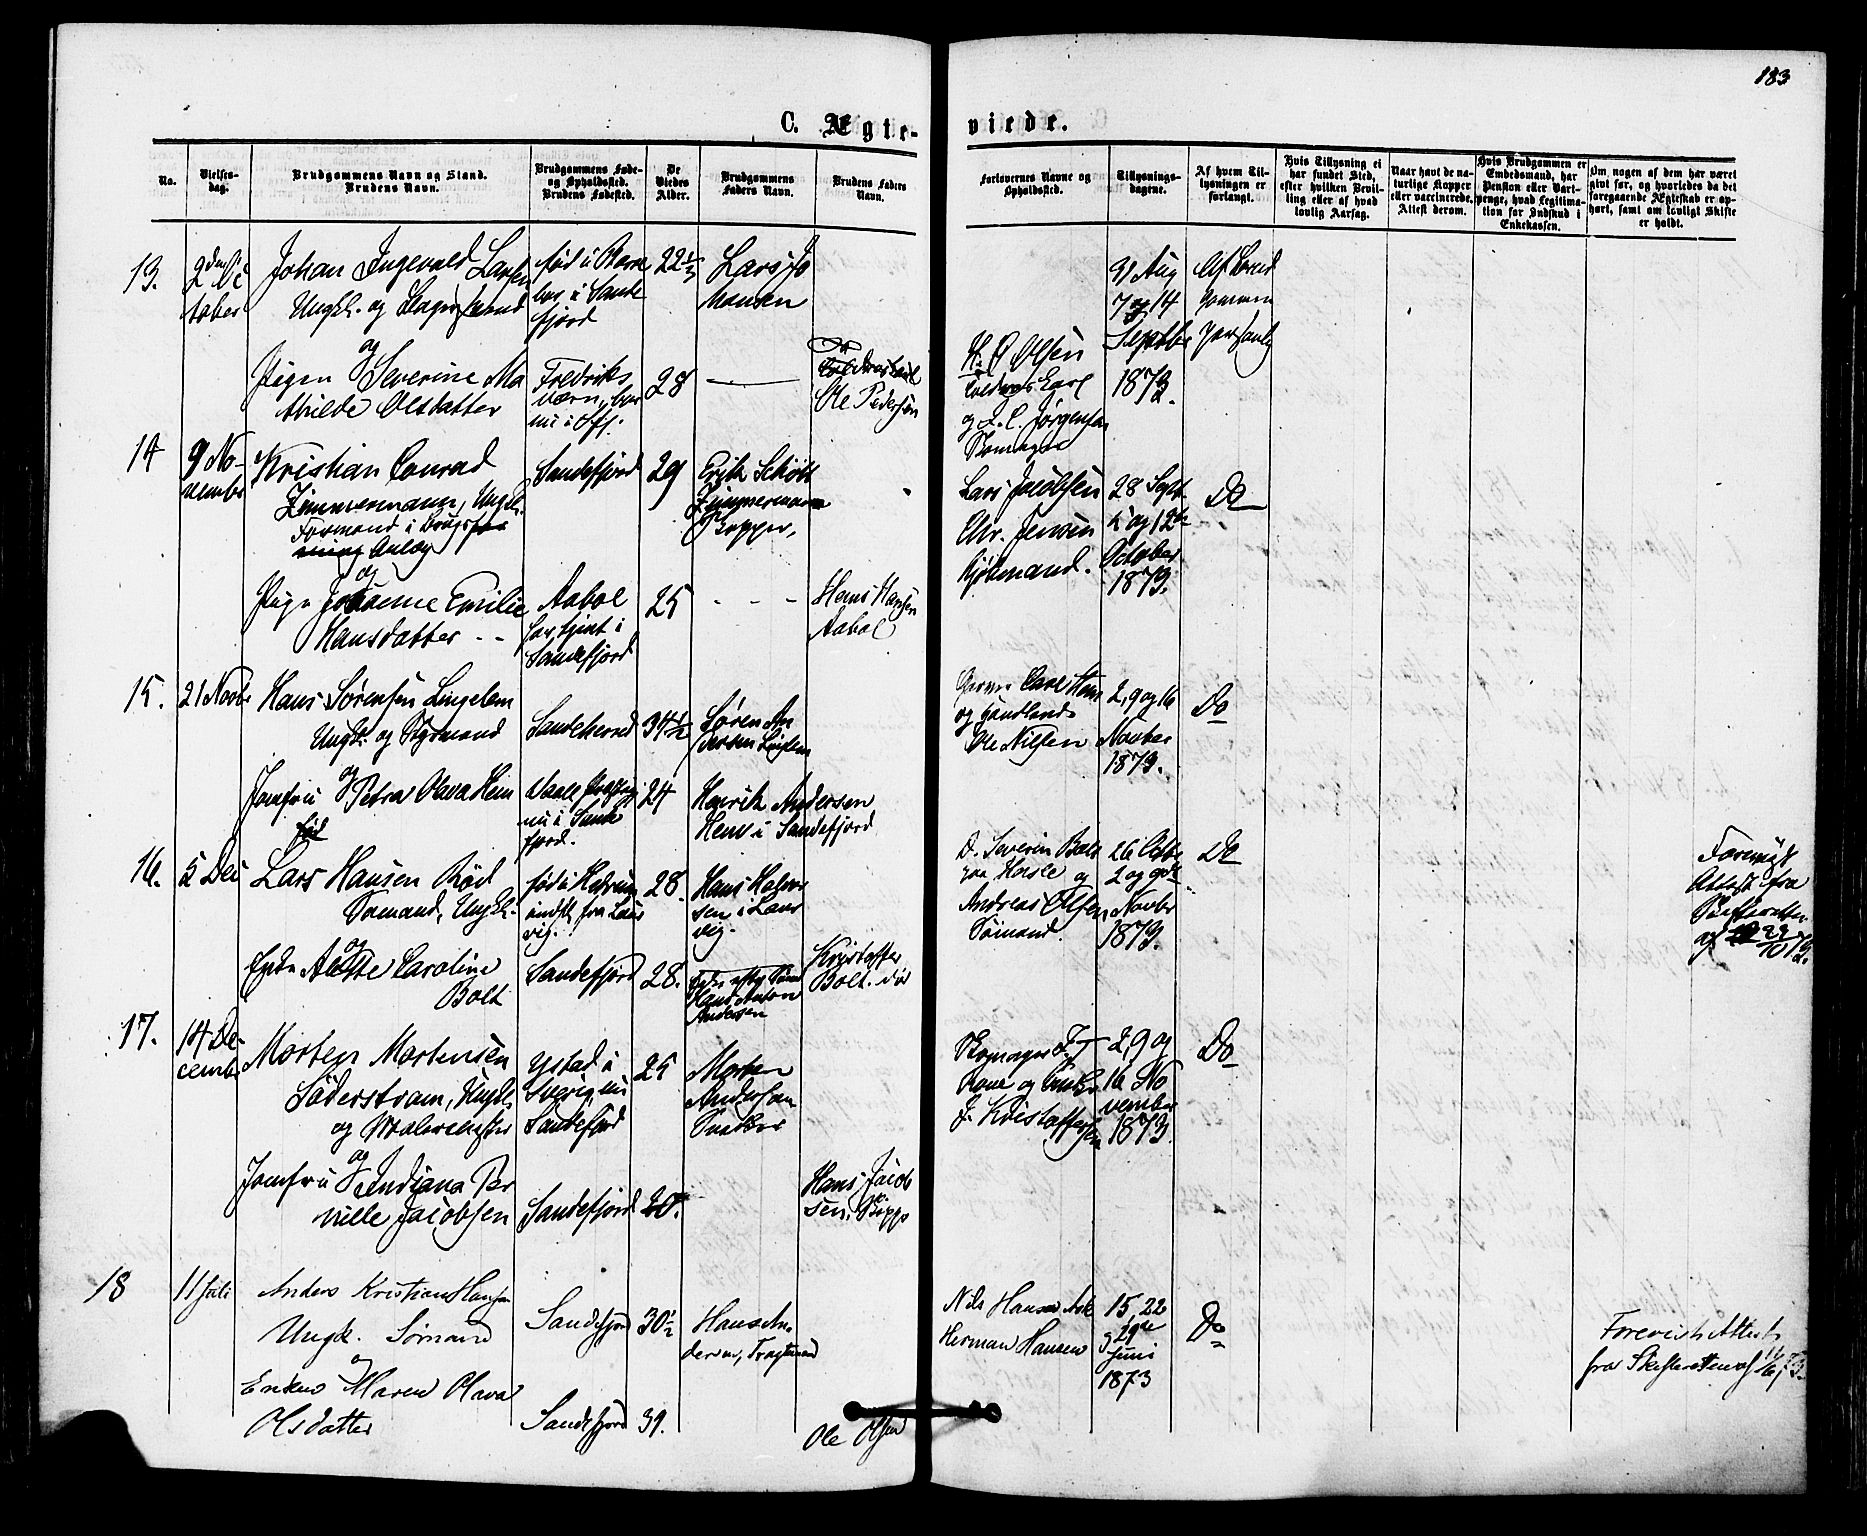 183
C. Ægte-
viede.
No.
Vielses-
dag.
Brudgommens Navn og Stand.
Brudens Navn.
Brudgommens Føde-
og Opholdssted.
Brudens Fødested.
De
Viedes
Alder.
Brudgommens
Faders Navn.
Brudens Faders
Navn.
Forlovernes Navne og
Opholdssted.
Tillysnings-
dagene.
Af hvem Til-
lysningen er
forlangt.
Hvis Tillysning ei
har fundet Sted,
efter hvilken Bevil-
ling eller af hvad
lovlig Aarsag.
Naar havt de na-
turlige Kopper
eller vaccinerede.
Attest derom.
Hvis Brudgommen er
Embedsmand, har
Pension eller Vart-
penge, hvad Legitima-
tion for Indskud i
Enkekassen.
Om nogen af dem har været
givt før, og hvorledes da det
foregaaende Ægteskab er op-
hørt, samt om lovligt Skifte
er holdt.
13.
2den Oc
tober
Johan Ingevald Larsen
Ungk. og
og
Pigen Severine Ma
thilde Olsdatter
født i
bor i Sande
fjord
Fredriks
værn, bor
nu i
22 1/3
28
Lars Jo
hansen
Ole Pedersen
H. O Olsen
og L. C. Jørgensen
Skomager
31 Aug
7 og 14
Septbr
1873.
Af Brud
gommen
personlig
14
9 No-
vembr
Kristian Conrad
Zimmermann, Ungk.
Formand i
Anlæg
og
Pige Johanne Emilie
Hansdatter - -
Sandefjord
Aabol
har tjent i
Sandefjord
29
25
Erik Schött
Zimmermann
- - -
Hans Hansen
Aabol
Lars Jacobsen
Chr. Jensen
Kjøbmand.
28 Sept
5 og 12te
October
1873.
Do
15.
21 Novbr
Hans Sørensen Lingelem
Ungk. og Styrmand
og
Jomfru Petra Olava Hem
Sandeherred
nu i Sande
fjord.
34 1/2
24
Søren An
dersen Lingelem
Henrik Andersen
Hem i Sandefjord
Carl Hem
og Handlende
Ole Nilsen
2, 9 og 16
Novber
1873.
Do
16.
5 Dec
Lars Hansen Röd
Sømand, Ungk.
og
Enke Anette Caroline
Bolt
født i Hedrum
indfl. fra Laur
vig.
Sandefjord
28.
28.
Hans Halvor
sen i Laur
vig.
Enke efter Sømd
Hans Anton
Andersen
Kristoffer
Bolt. død
D. Severin Bolt
paa Hasle og
Andreas Olsen
Sømand.
26 Octbr
2 og 9de
Novbr
1873.
Do
Forevist
Attest fra
Skifteretten
af 22/10 73.
17.
14 De-
cembr
Morten Mortensen
Söderstram, Ungk.
og Malermester
og
Jomfru Indiana Per
nille Jacobsen
Ystad i
Sverig, nu
Sandefjord
Sandefjord
25
20.
Morten
Andersson
Hans Jacob
sen,
Skomager J. T
og
J. Kristoffersen
2, 9 og
16 No
vember
1873.
Do
18
11 Juli
Anders Kristian Hansen
Ungk. Sømand
og
Enken Maren Olava
Olsdatter
Sandefjord
Sandefjord
30 1/2
39.
Hans An-
dersen, Fragtmand
Ole Olsen
Nils Hansen Ask
Herman Hansen
15, 22
og 29de
Juni
1873
Do
Forevist Attest
fra Skifteretten af 11/6 73.